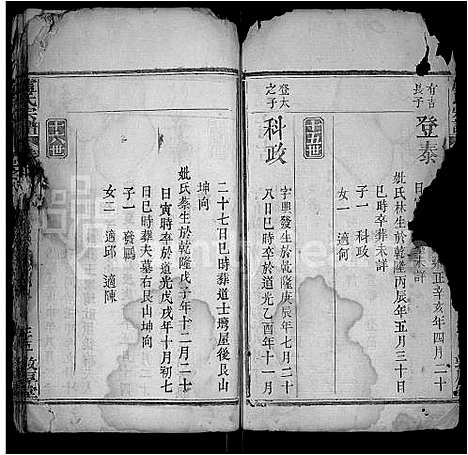 有吉
長子
登泰
正辛亥年四月二十
未詳
妣氏林生於乾隆丙辰年五月三十日
巳時卒葬未詳
子一 科政
女一 適何
十五世
登太
之子
科政
字興發生於乾隆庚辰年七月二十
八日巳時卒於道光乙酉年十一月
二十七日巳時葬道士塆屋後艮山
坤向
妣氏秦生於乾隆戊子年十二月二十
日寅時卒於道光戊戌年十月初七
日巳時葬夫墓右艮山坤向
子一 發鵬
女二 適邱 適陳
十六世
氏宗譜
敦厚堂